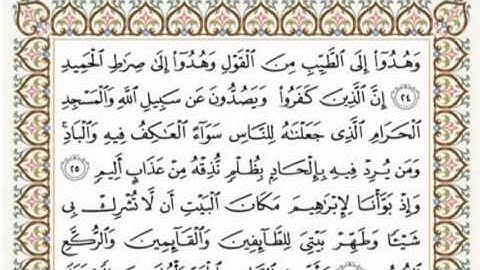 وَهُدُوٓا۟ إِلَى ٱلطَّيِّبِ مِنَ ٱلْقَوْلِ وَهُدُوٓا۟ إِلَىٰ صِرَٰطِ ٱلْحَمِيدِ
٢٤ إِنَّ ٱلَّذِينَ كَفَرُوا۟ وَيَصُدُّونَ عَن سَبِيلِ ٱللَّهِ وَٱلْمَسْجِدِ
ٱلْحَرَامِ ٱلَّذِى جَعَلْنَٰهُ لِلنَّاسِ سَوَآءً ٱلْعَٰكِفُ فِيهِ وَٱلْبَادِ
وَمَن يُرِدْ فِيهِ بِإِلْحَادٍۭ بِظُلْمٍ نُّذِقْهُ مِنْ عَذَابٍ أَلِيمٍ ٢٥
وَإِذْ بَوَّأْنَا لِإِبْرَٰهِيمَ مَكَانَ ٱلْبَيْتِ أَن لَّا تُشْرِكْ بِى
شَيْـًٔا وَطَهِّرْ بَيْتِىَ لِلطَّآئِفِينَ وَٱلْقَآئِمِينَ وَٱلرُّكَّعِ